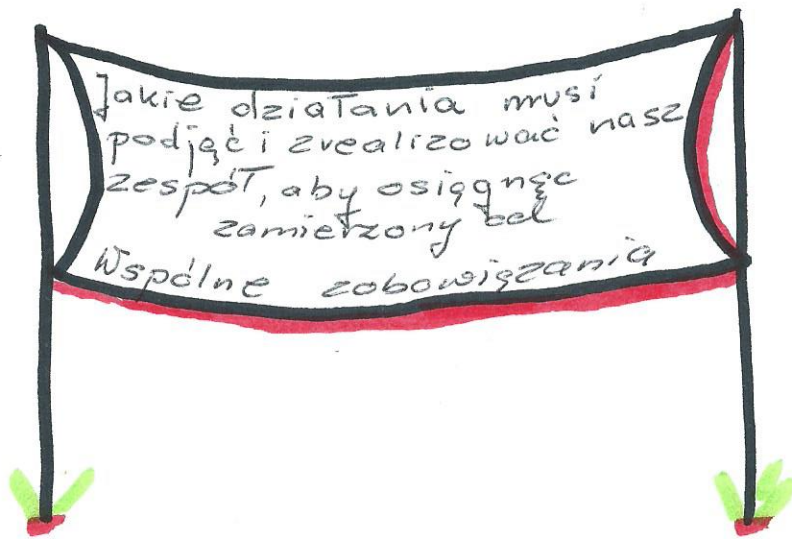 Jakie działania musi
podjąć i zrealizować nasz
zespół, aby osiągnąć
zamierzony cel
Wspólne zobowiązania